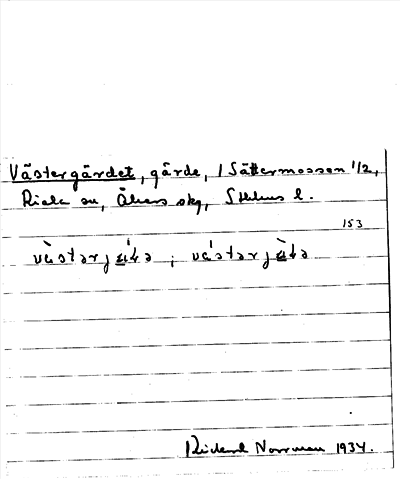 Västergärdet, gärde, / Sättermossen 1/2,
Riala sn, Åkers skg, Sthlms l.
153
västərj ; västərj
Rickard Norrman 1934.